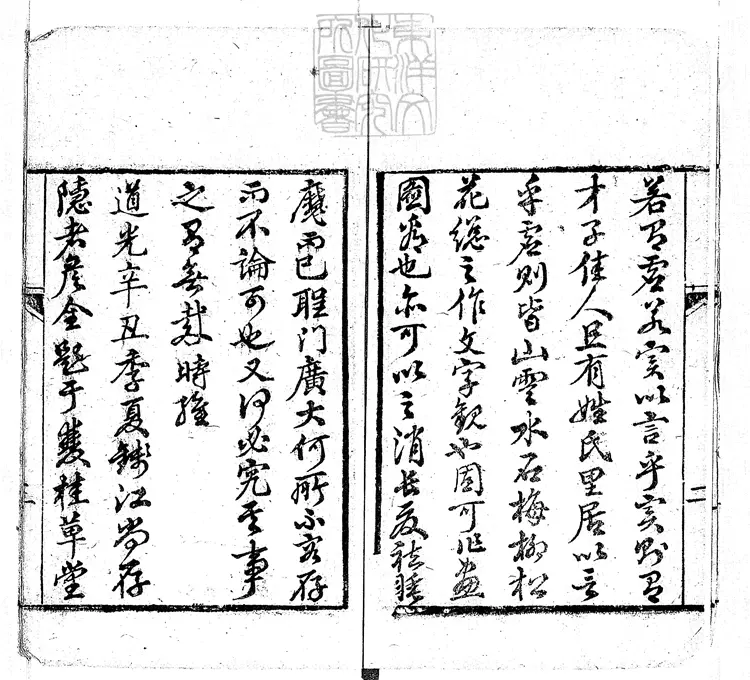 若有虛若实以言乎实則有
才子佳人且有姓氏里居以言
乎虛則皆山雲水石梅柳松
花總之作文字観也固可作畫
圖看也亦可以之消長夏祛睡
魔而已聖门廣大何所不容存
而不論可也又何必究其事
之有無哉時維
道光辛丑季夏錢江尚存
隱者詹金題于雙桂草堂
二
東洋文化研究所圖書